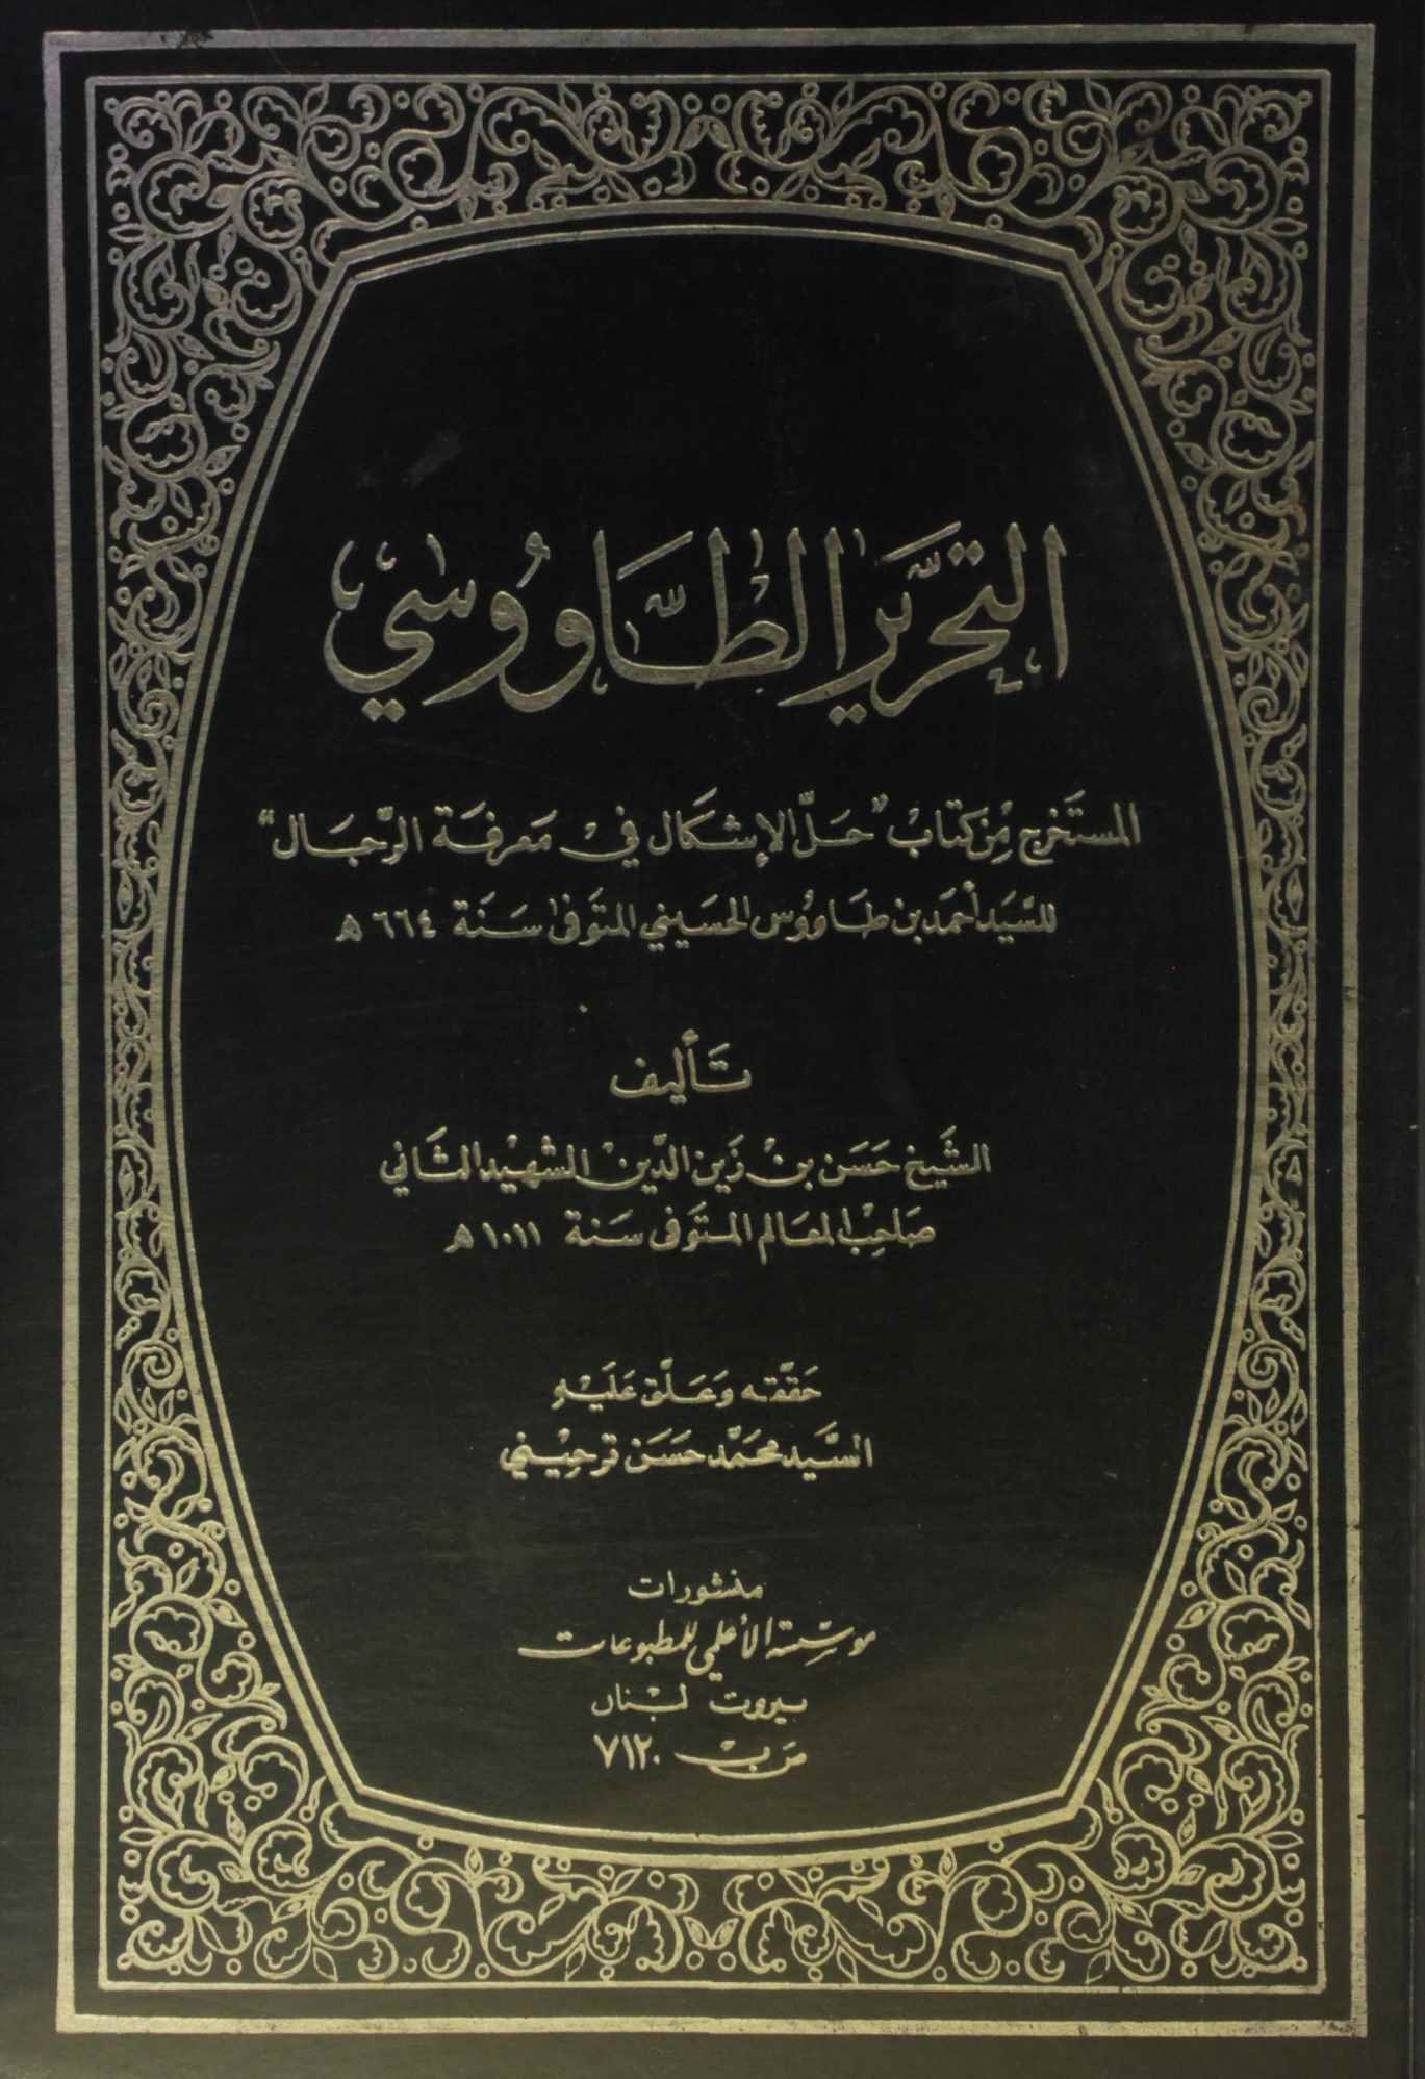 التحرير الطاووسي
المستخرج من كتاب "حل الإشكال في معرفة الرجال"
للسيد أحمد بن طاووس الحسيني المتوفى سنة ٦٦٤ هـ
تأليف
الشيخ حسن بن زين الدين الشهيد الثاني
صاحب المعالم المتوفى سنة ١٠١١ هـ
حققه وعلق عليه
السيد محمد حسن ترحيني
منشورات
مؤسسة الأعلمي للمطبوعات
بيروت لبنان
ص ب ٧١٢٠